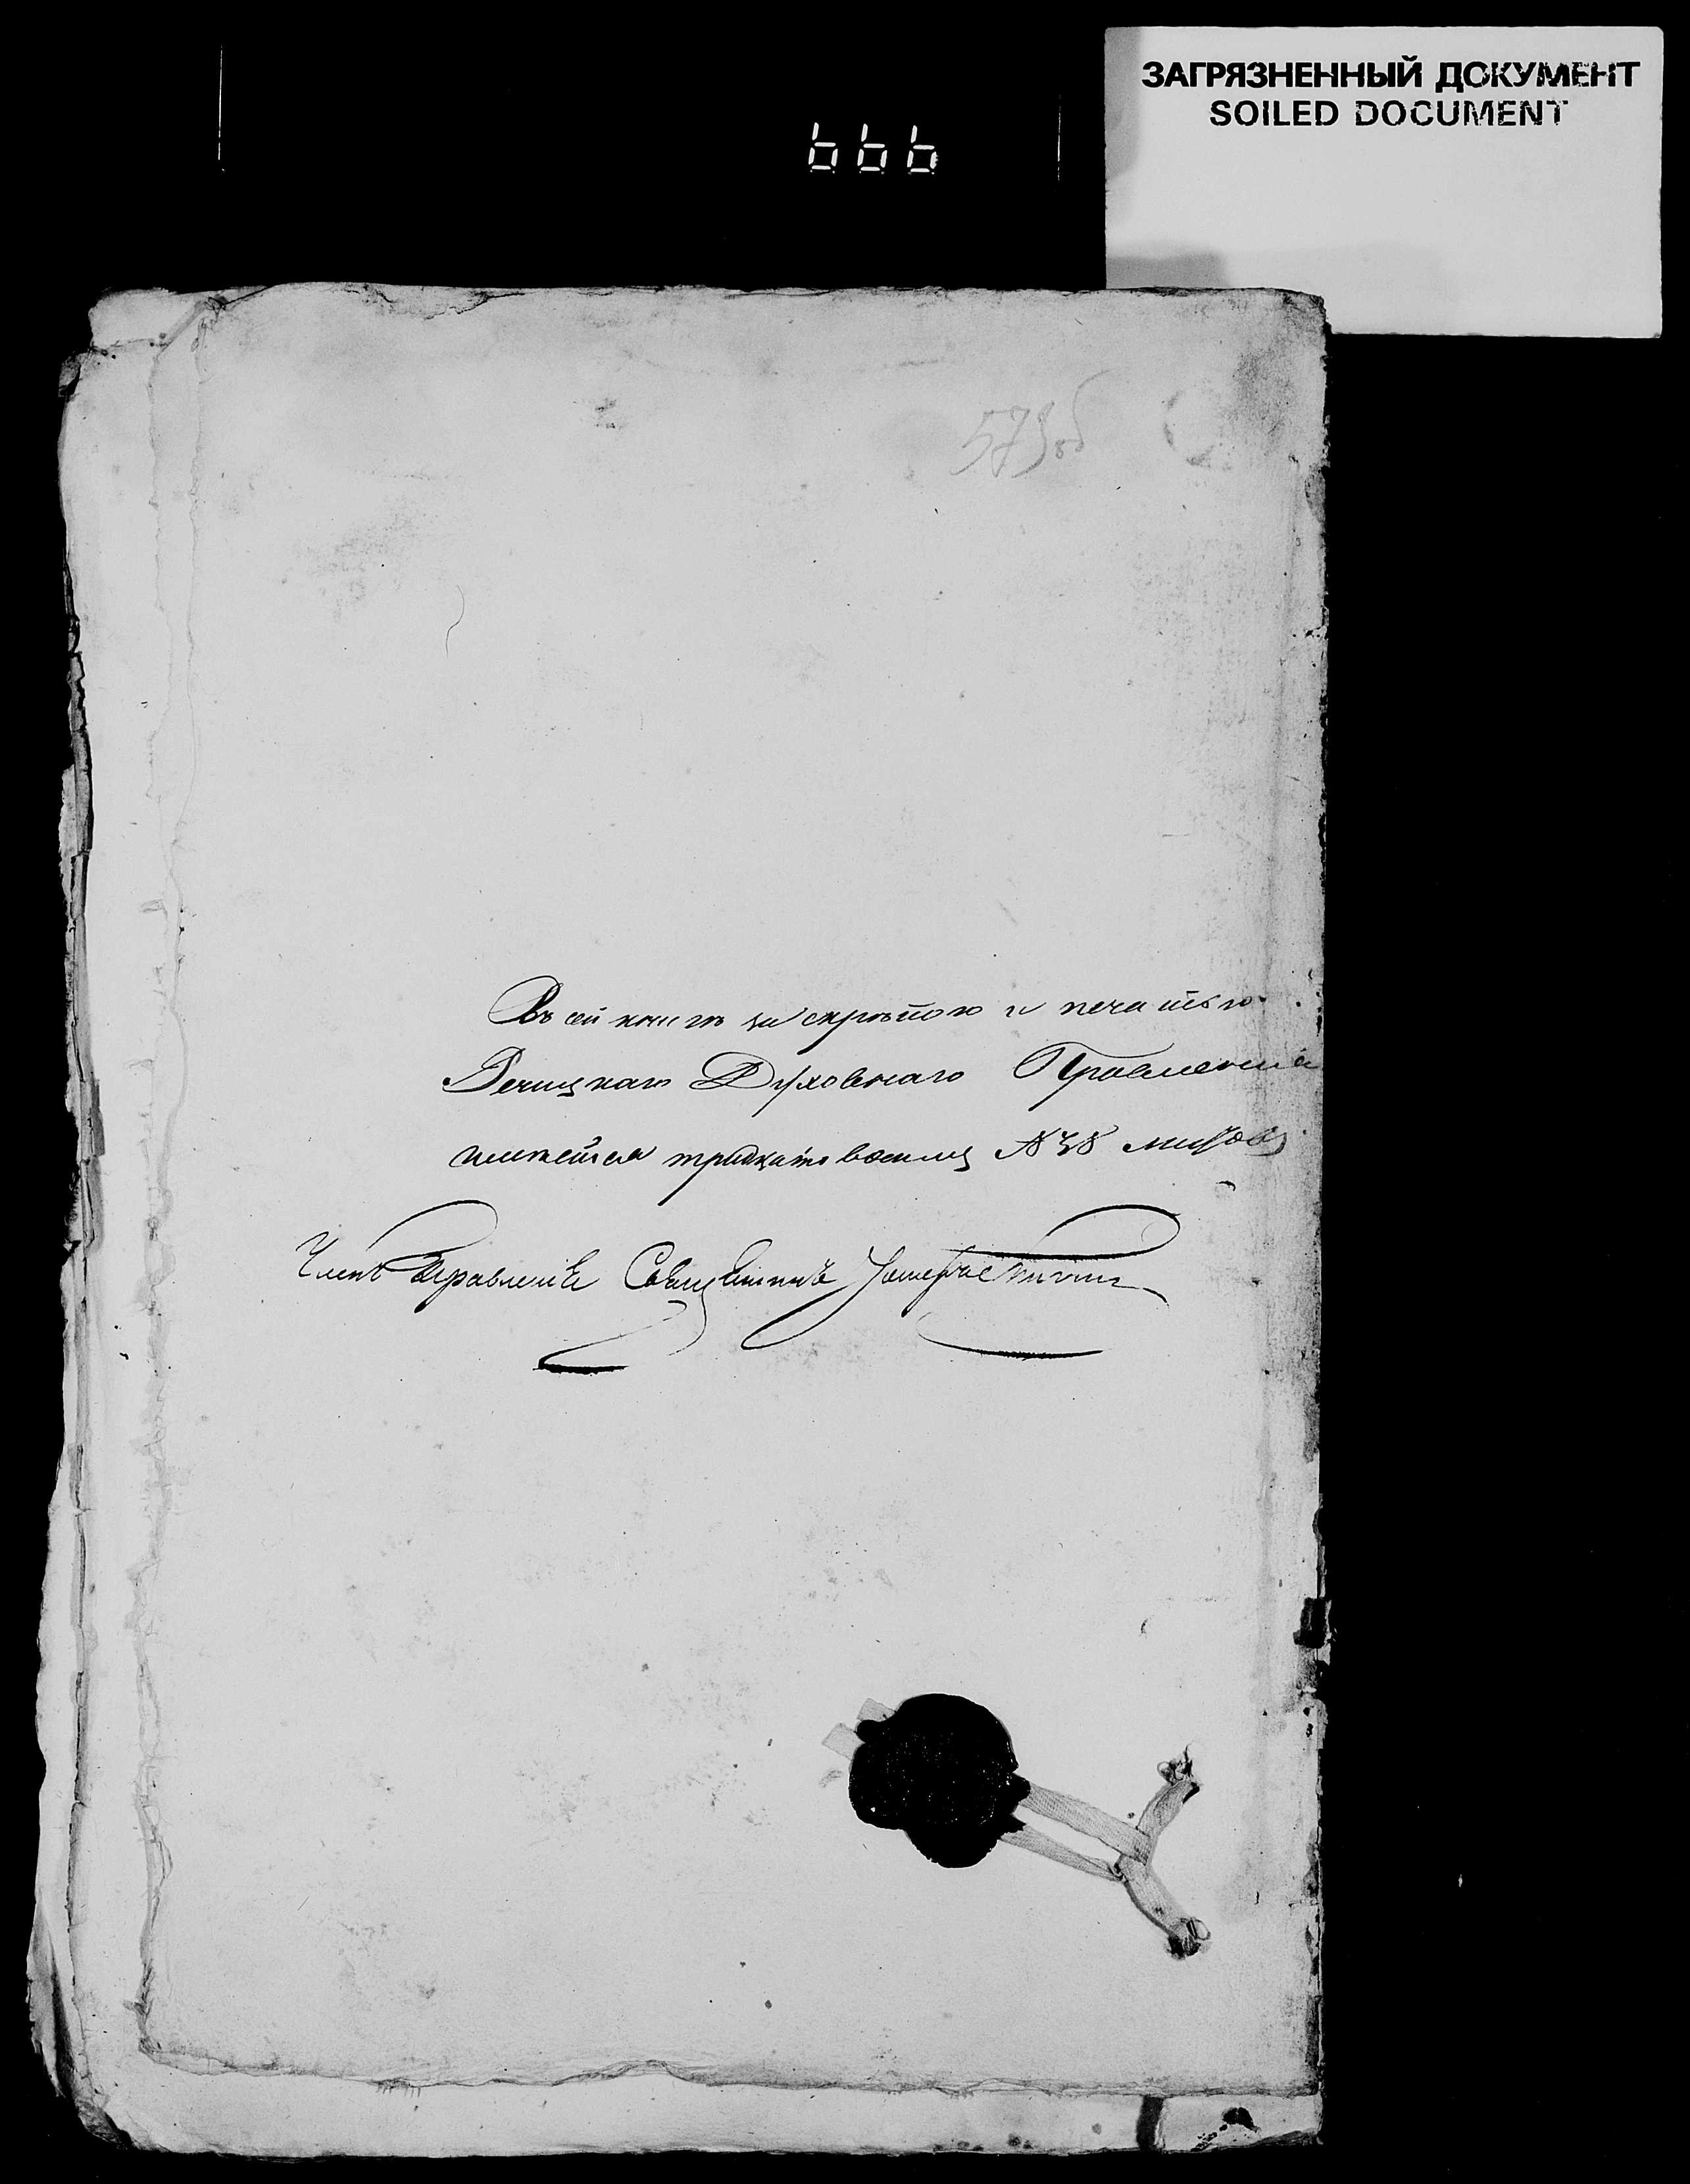 ЗАГРЯЗНЕННЫЙ ДОКУМЕНТ
SOILED DOCUMENT
666
579об
Въ сей книгѣ за скрѣпою и печатью
Речицкаго Духовнаго Правленія
имѣется тридцать восемь № 38 листовъ
Членъ Правленія Священникъ